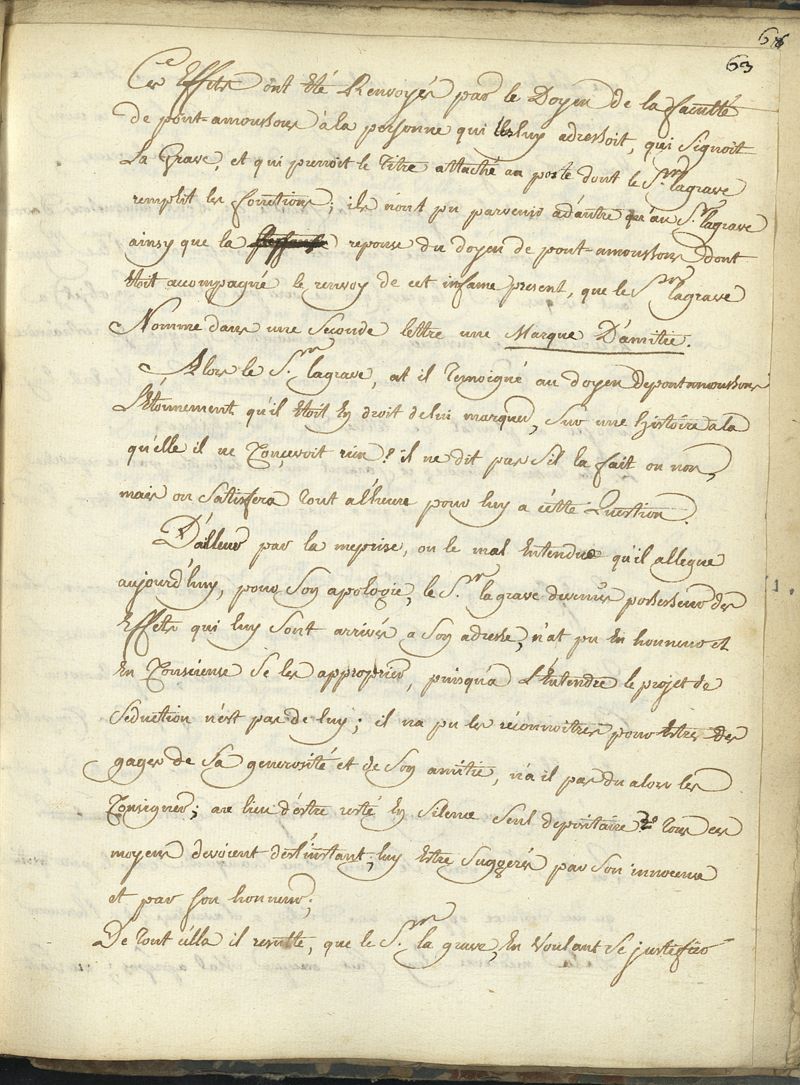 68
63
Ces Effets ont été Renvoyés par le Doyen de la faculté
de pont-amoussons à la personne qui les luy adressoit, qui Signoit
La Grave, et qui prenoit le Titre attaché au poste dont le Sr. lagrave
remplit les fonctions; ils n'ont pu parvenir ad'autre qu'au Sr. lagrave
ainsy que la reponse du doyen de pont-amoussons dont
étoit accompagné le renvoy de cet infame present, que le Sr. lagrave
Nomme dans une Seconde lettre une Marque D'amitie.
Alors le Sr. lagrave, at il Temoigné au doyen depontamoussons
L'étonnement qu'il étoit En droit de lui marquer, Sur une histoire a la
qu'elle il ne Conçevoit rien? il ne dit pas s'il la fait ou non,
mais on Satisfera Tout al'heure pour luy a cette Question.
D'ailleur par la meprise, ou le mal Entendu qu'il allegue
aujourd'huy, pour Son apologie, le Sr. la grave devenus possesseur des
Effets qui luy Sont arrivés a Son adresse, n'at pu En honneur et
En Consciense Se les approprier, puisqu'a L'Entendre le projet de
Seduction n'est pas de luy; il na pu les réconnoitres pour Estres des
gages de Sa generosité et de Son amitie, n'a il pas du alors les
Consigner; au lieu d'estre resté En Silence Seul depositaire? Tous ces
moyens devoient dest'instant, luy Estre Suggerés par Son innocence
et par son honneur;
De Tout c'ella il resulte, que le Sr. la grave, En Voulant Se justefier